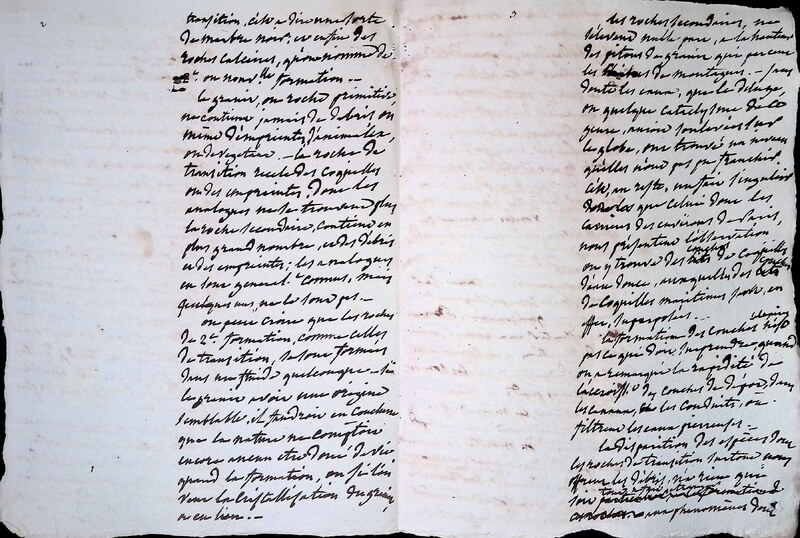 2
transition, c'est a dire une sorte
de marbre noir, et enfin des
roches calcaires, qu'on nomme de
2e. ou nouv.lle formation. —
le granit, ou roche primitive,
ne contient jamais de debris ou
même d'empreintes d'animaux,
ou de vegetaux — la roche de
transition recele des coquilles
ou des empreintes, dont les
analogues ne se trouvent plus
la roche secondaire, contient en
plus grand nombre, et des debris
et des empreintes; les analogues
en sont general.t connus, mais
quelques uns, ne le sont pas —
on peut croire que les roches
de 2e. formation, comme celles
de transition, se sont formées
dans un fluide quelconque — si
le granit avoit une origine
semblable, il faudroit en conclure
que la nature ne comptoit
encore aucun etre doué de vie
quand la formation, ou si l'on
veut la cristallisation du granit,
a eu lieu. —
3
les roches secondaires, ne
s'elevent nulle part, a la hauteur
des pitons de granit qui percent
les de montagnes. — sans
doute les eaux, que le deluge,
ou quelque cataclysme de ce
genre, avoit soulevées sur
le globe, ont trouvé un niveau
qu'elles n'ont pas pu franchir.
c'est, au reste, un fait singulier
que celui dont les
carrieres des environs de Paris,
nous presentent l'observation
on y trouve des couches de coquilles
d'eau douce, auxquelles des couches
de coquilles maritimes sont, en
effet, superposées...
la formation des couches
pas ce qui doit surprendre, quand
on a remarqué la rapidité de
des couches de depot, dans
les canaux, les conduits, où
filtrent les eaux pierreuses. —
la disparition des especes dont
les roches de transition surtout nous
offrent les debris, n'a rien qui
soit
un phenomene dont